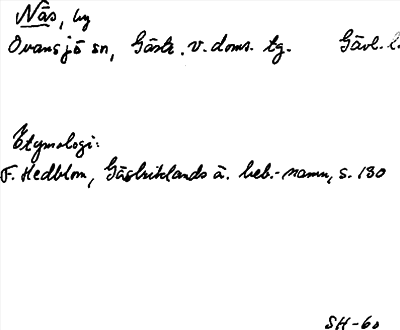 Näs, by
Ovansjö sn, Gästr. v. doms. tg. Gävl. l.
Etymologi:
F. Hedblom, Gästriklands ä. beb.-namn, s. 130
SH-60